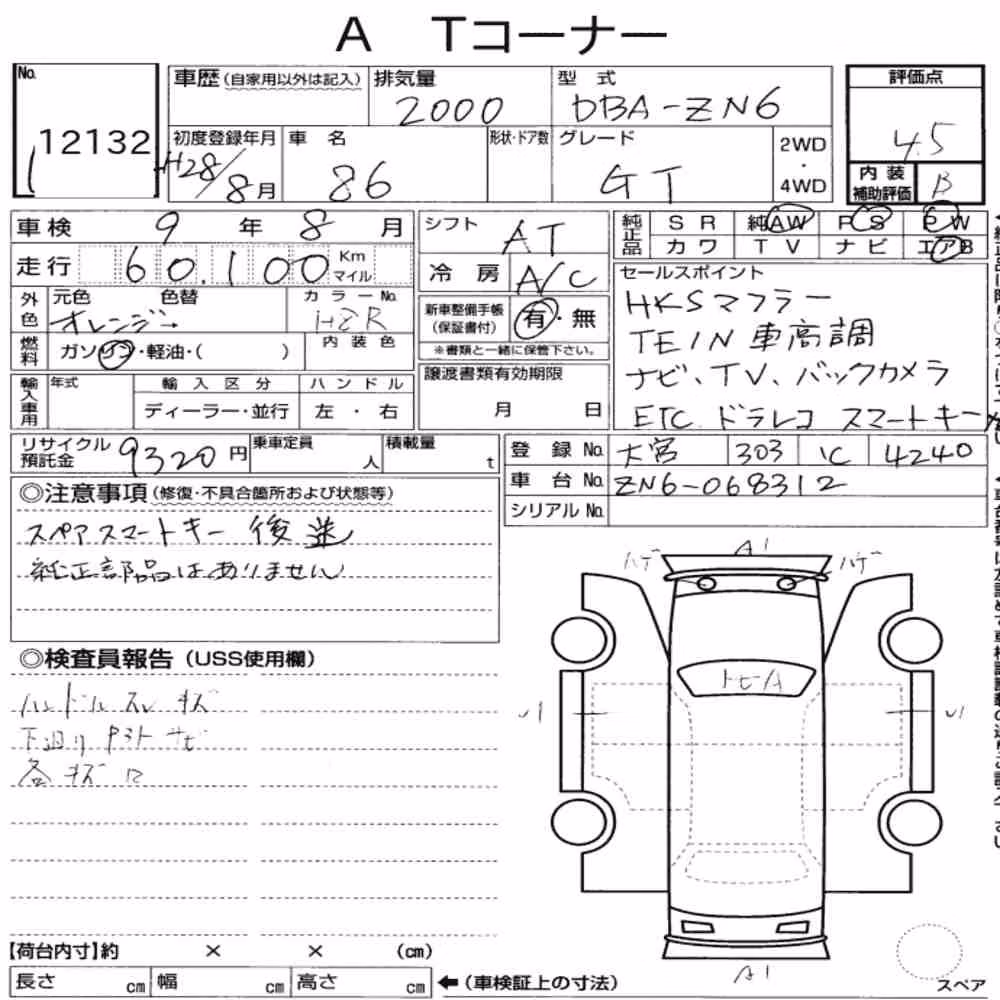 A Tコーナー
No.
12132
車歴(自家用以外は記入)
排気量
2000
型式
DBA-ZN6
評価点
4.5
初度登録年月
H28/8月
車名
86
形状・ドア数
グレード
GT
2WD
・
4WD
内装
補助評価
B
車検 9年 8月
シフト
AT
純正品
SR 純AW PS PW
カワ TV ナビ エアB
走行 60.100 Km
マイル
冷房 A/C
セールスポイント
HKSマフラー
TEIN 車高調
ナビ、TV、バックカメラ
ETC ドラレコ スマートキー
外色
元色 色替
オレンジ→
カラーNo.
H8R
新車整備手帳
(保証書付)
有・無
※書類と一緒に保管下さい。
燃料
ガソリン・軽油・( )
内装色
輸入車用
年式
輸入区分
ディーラー・並行
ハンドル
左・右
譲渡書類有効期限
月 日
リサイクル
預託金
9320円
乗車定員
人
積載量
t
登録No. 大宮 303 4240
車台No. ZN6-068312
シリアルNo.
◎注意事項(修復・不具合箇所および状態等)
スペアスマートキー 後送
純正部品はありません
◎検査員報告(USS使用欄)
ハンドルスレ キズ
下廻り サビ
各キズ
A1
ハゲ
ハゲ
トビA
A1
【荷台内寸】約 × × (cm)
長さ cm 幅 cm 高さ cm
←(車検証上の寸法)
スペア